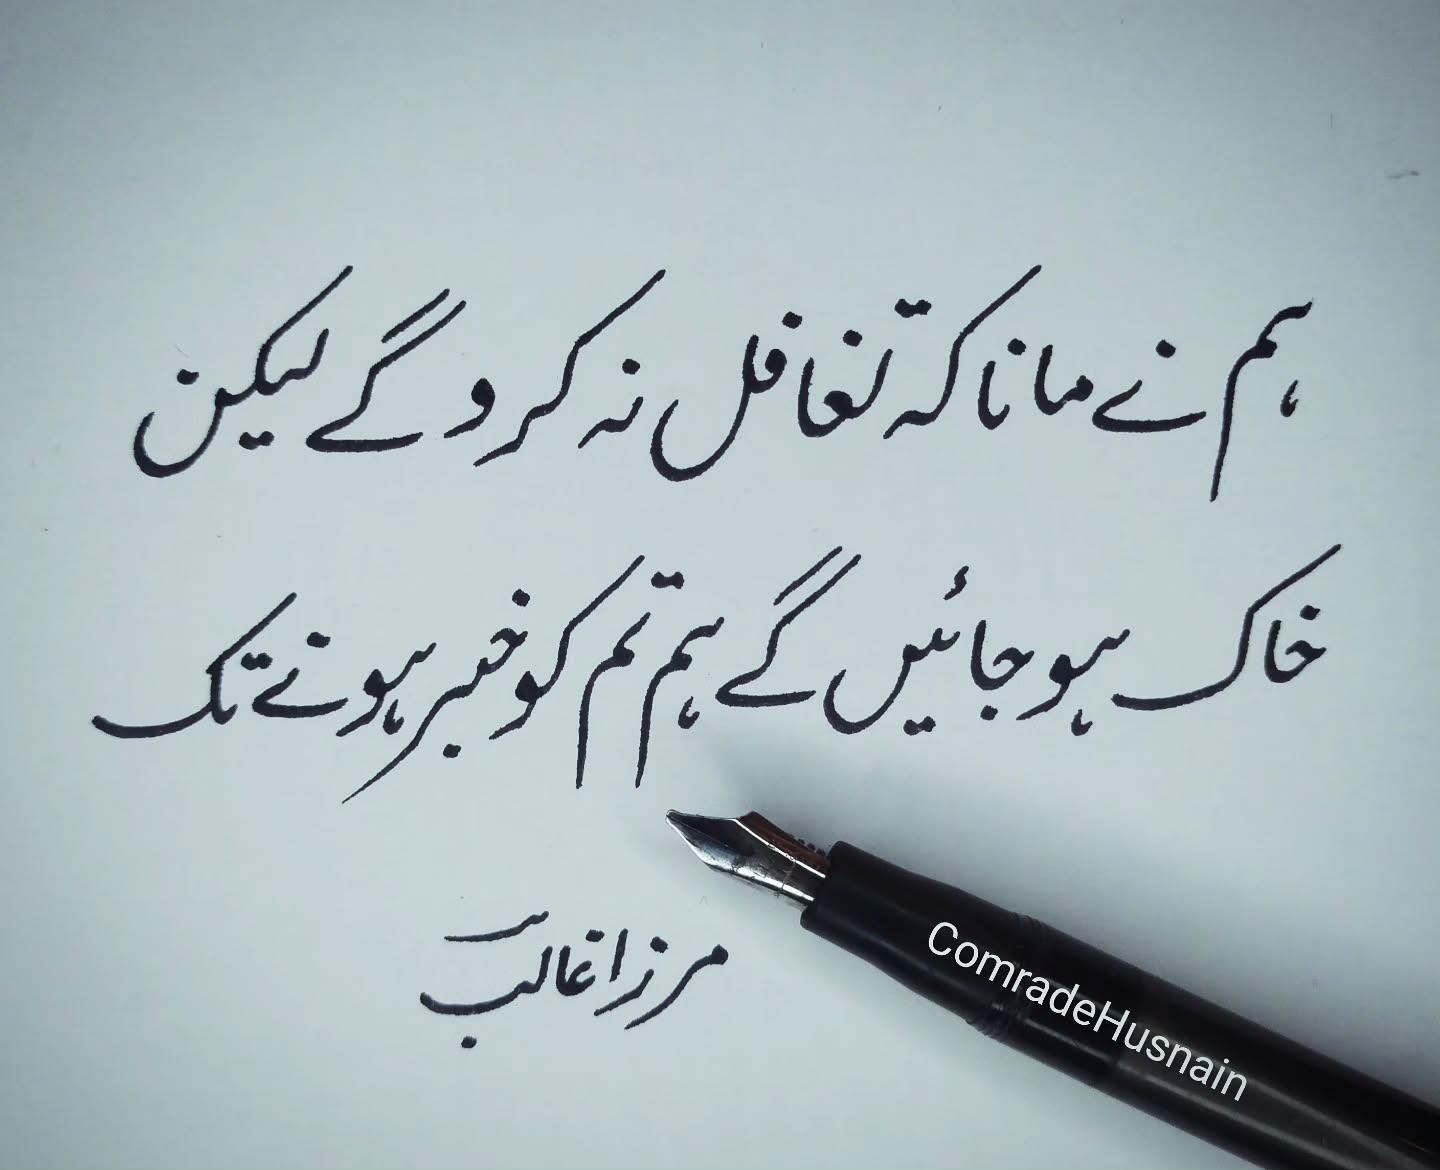 ہم نے مانا کہ تغافل نہ کرو گے لیکن
خاک ہو جائیں گے ہم تم کو خبر ہونے تک
مرزا غالب
ComradeHusnain